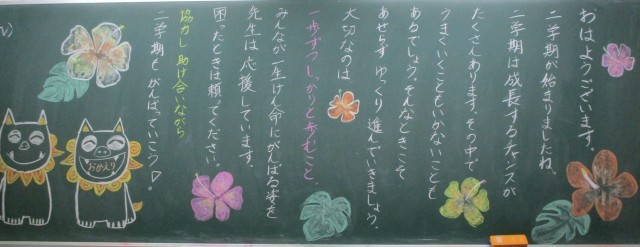 おはようございます。
二学期が始まりましたね。
二学期は成長するチャンスが
たくさんあります。その中で
うまくいくこともいかないことも
あるでしょう。そんなときこそ
あせらず ゆっくり 進んでいきましょう。
大切なのは、
一歩ずつしっかりと歩むこと。
みんなが一生けん命にがんばる姿を
先生は応援しています。
困ったときは頼ってください。
協力し 助け合いながら
二学期も がんばっていこう♡。
おかえり